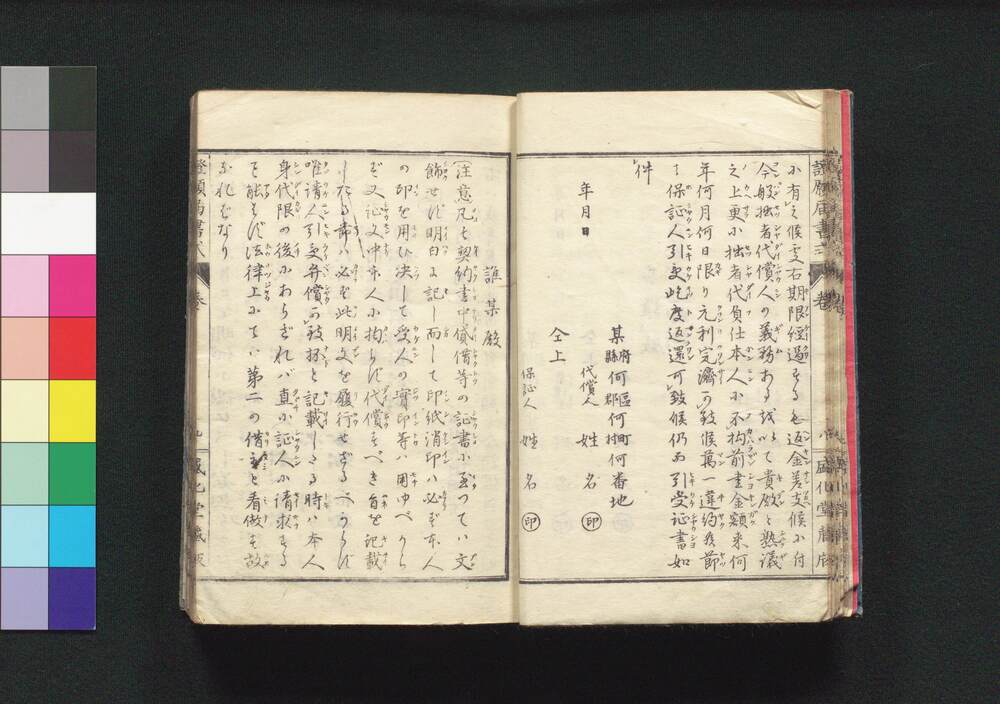 小有之候処右期限経過するも返金差支候小付
今般拙者代償人の義務あるを以て貴殿と熟議
之上更小拙者代負仕本人小不拘前書金額来何
年何月何日限り元利完済可致候萬一違約候節
ハ保証人引受屹度返還可致候仍而引受証書如
件
年月日
某府縣何區郡何町村何番地
代償人 姓名 印
仝上
保証人 姓名 印
誰某殿
注意凡そ契約書中貸借等の証書小至つてハ文
飾せず明白に記し而して印紙消印ハ必ず本人
の印を用ひ决して受人の實印等ハ用ゆべからず
又証文中本人小拘らず代償すべき旨を記載
したる時ハ必ず此明文を履行せざるべからず
唯請人引受弁償可致抔と記載したる時ハ本人
身代限の後小あらざれバ直小証人小請求する
を能はず法律上小てハ第二の借主と看做す故
なればなり
證願届書式
卷
九
盛化堂藏版